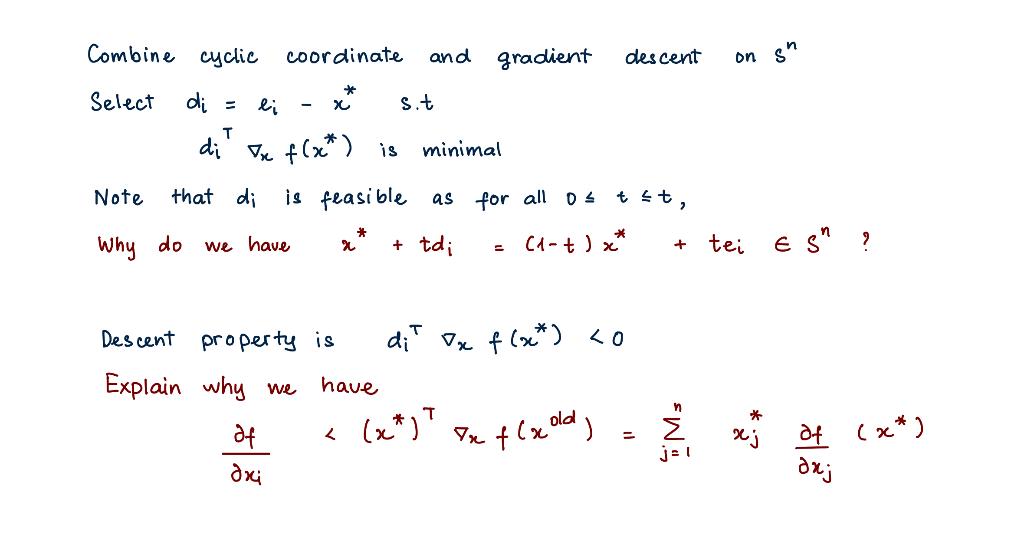 Combine cyclic coordinate and gradient descent on Sⁿ
Select dᵢ = eᵢ - x* s.t
dᵢᵀ ∇ₓ f(x*) is minimal
Note that dᵢ is feasible as for all 0 ≤ t ≤ t,
Why do we have x* + tdᵢ = (1-t) x* + teᵢ ∈ Sⁿ ?
Descent property is dᵢᵀ ∇ₓ f(x*) < 0
Explain why we have
∂f/∂xᵢ < (x*)ᵀ ∇ₓ f(x^old) = ∑_{j=1}^{n} x_j* ∂f/∂x_j (x*)